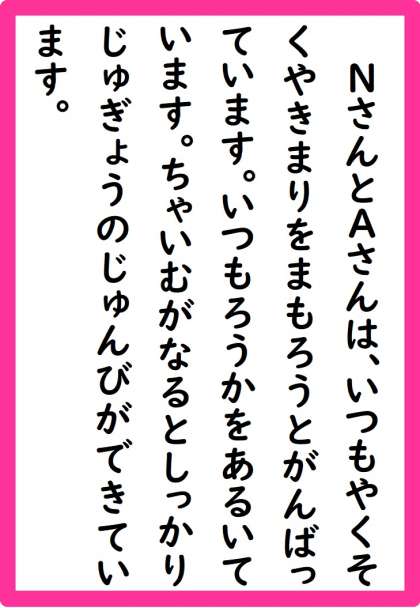 NさんとAさんは、いつもやくそ
くやきまりをまもろうとがんばっ
ています。いつもろうかをあるいて
います。ちゃいむがなるとしっかり
じゅぎょうのじゅんびができてい
ます。